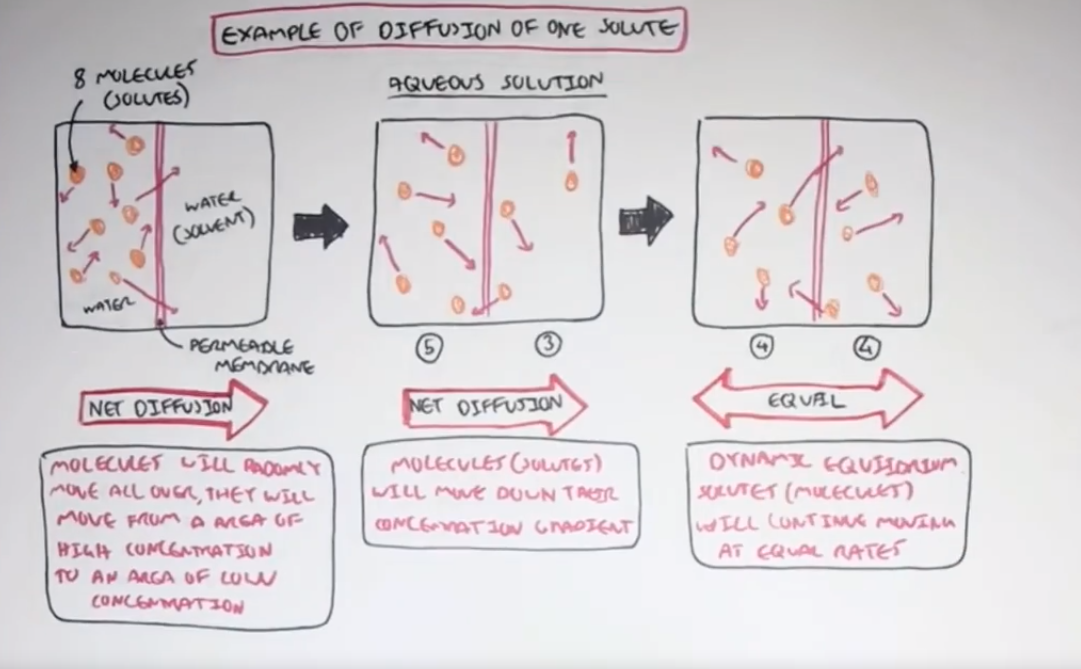 EXAMPLE OF DIFFUSION OF ONE SOLUTE
8 MOLECULES
(SOLUTES)
AQUEOUS SOLUTION
WATER
(SOLVENT)
WATER
PERMEABLE
MEMBRANE
5
3
4
4
NET DIFFUSION
NET DIFFUSION
EQUAL
MOLECULES WILL RADOMLY
MOVE ALL OVER, THEY WILL
MOVE FROM A AREA OF
HIGH CONCENTRATION
TO AN AREA OF LOW
CONCENTRATION
MOLECULES (SOLUTES)
WILL MOVE DOWN THEIR
CONCENTRATION GRADIENT
DYNAMIC EQUILIBRIUM
SOLUTES (MOLECULES)
WILL CONTINUE MOVING
AT EQUAL RATES